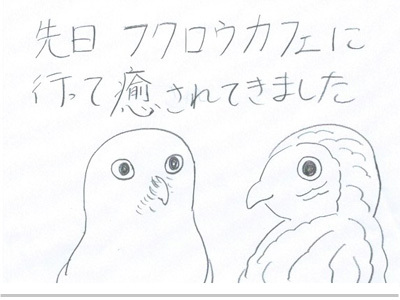 先日 フクロウカフェに
行って癒されてきました